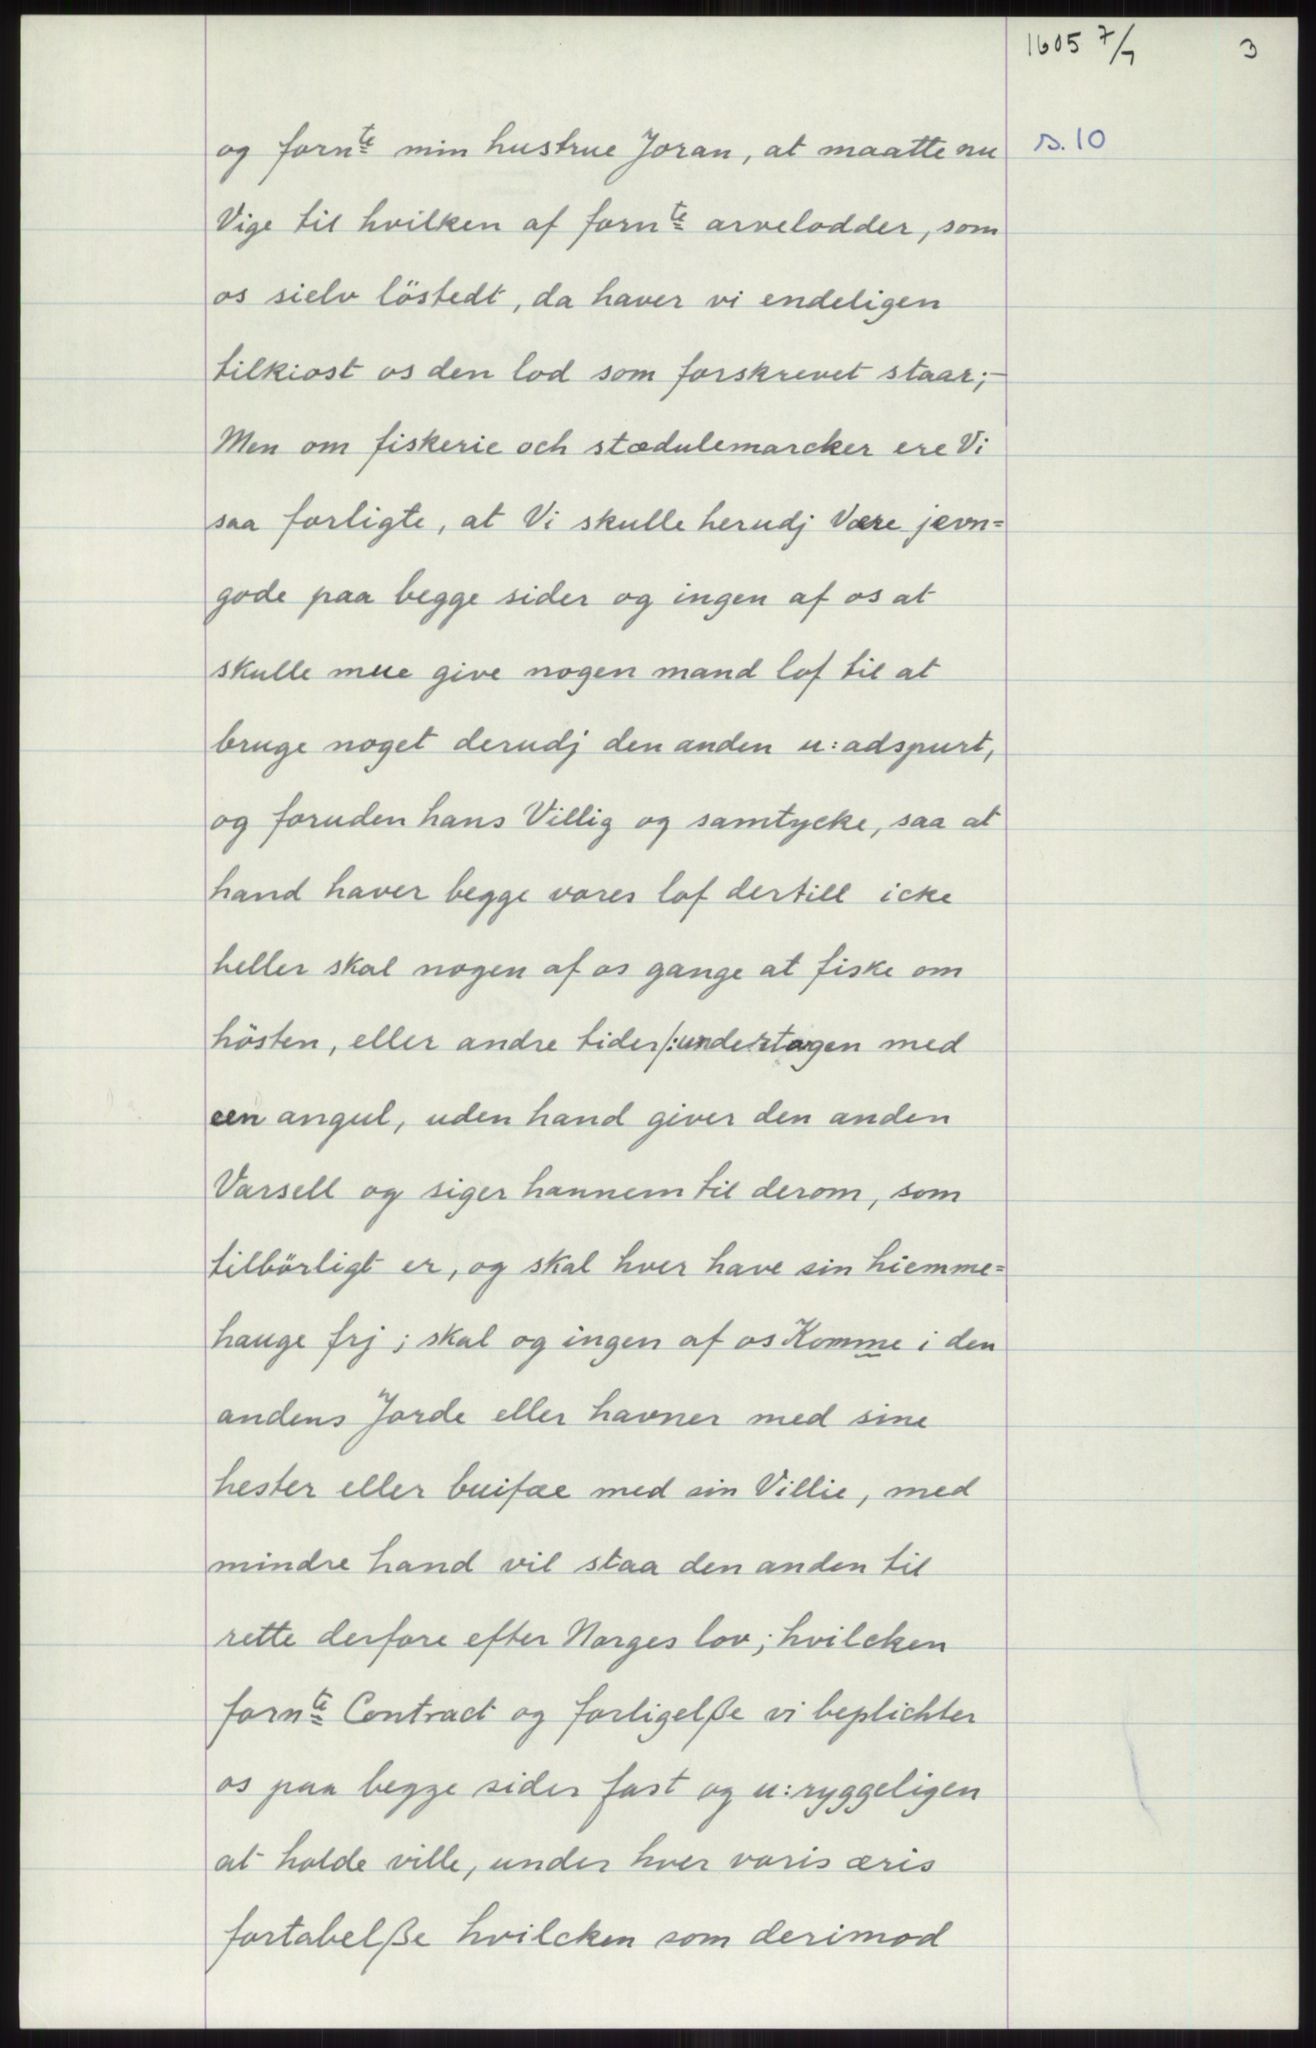 1605 7/7 3
og fornte min hustrue Joran, at maatte nu s. 10
Vige til hvilken af fornte arvelodder, som
os sielv löstedt, da haver vi endeligen
tilkiost os den lod som forskrevet staar;-
Men om fiskerie och stædulemarcker ere Vi
saa forligte, at Vi skulle herudj Være jevn=
gode paa begge sider og ingen af os at
skulle mue give nogen mand lof til at
bruge noget derudj den anden u:adspurt,
og foruden hans Villig og samtycke, saa at
hand haver begge vores lof dertill icke
heller skal nogen af os gange at fiske om
hösten, eller andre tider/:undertagen med
een angul, uden hand giver den anden
Varsell og siger hannem til derom, som
tilbörligt er, og skal hver have sin hiemme=
hauge frj; skal og ingen af os Komme i den
andens Jorde eller havner med sine
hester eller buifæ med sin Villie, med
mindre hand vil staa den anden til
rette derfore efter Norges lov; hvilcken
fornte Contract og forligelße vi beplichter
os paa begge sider fast og u:ryggeligen
at holde ville, under hver voris æris
fortabelße hvilcken som derimod